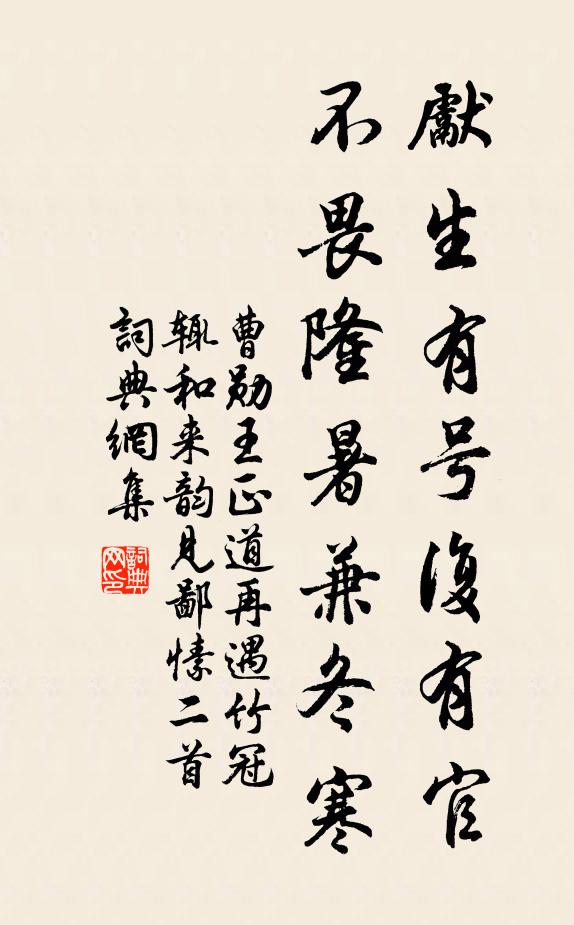 献生有号復有官
不畏隆暑兼冬寒
曹勋王正道再遇竹冠
辄和来韵见鄙愫二首
詞典網集
詞典
网印